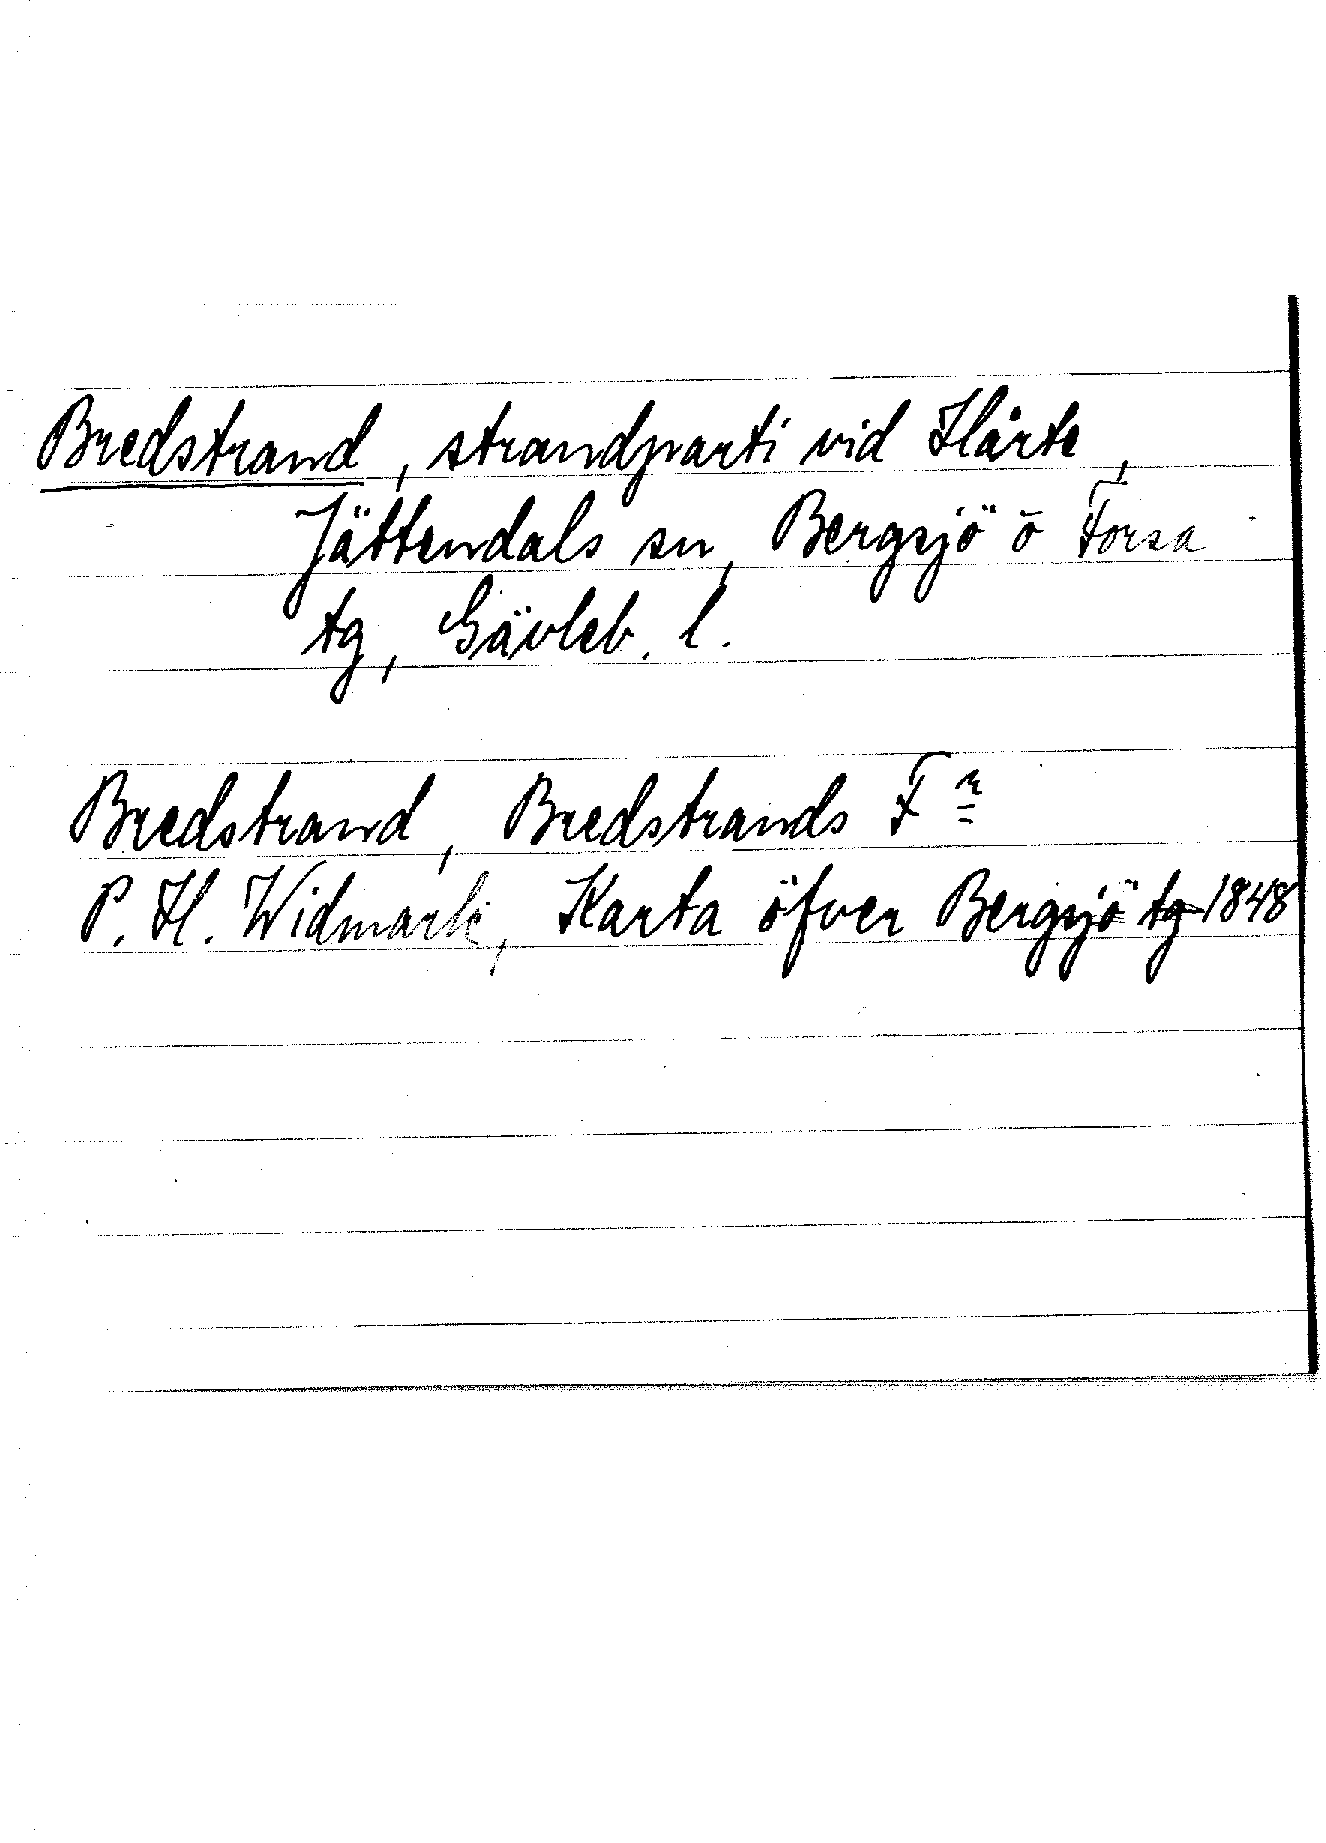 Bredstrand, strandparti vid Hårte,
Jättendals sn, Bergsjö o Forsa
tg, Gävleb. l.
Bredstrand, Bredstrands Fn
P. H. Widmark, Karta öfver Bergsjö tg 1848